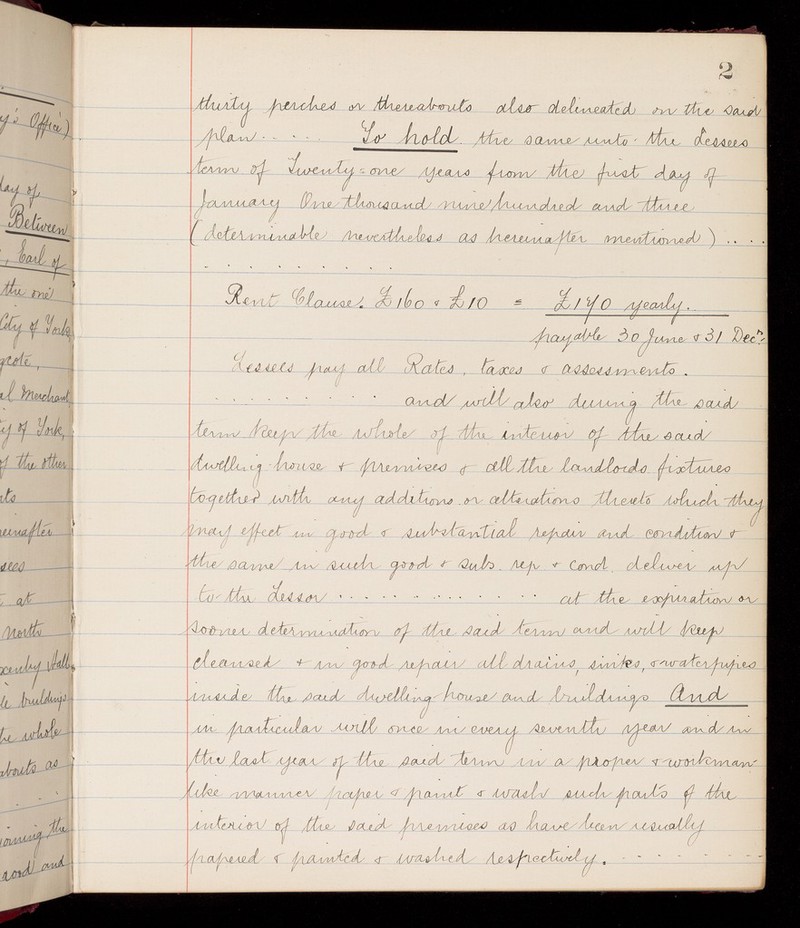 y's Office)
day of
Between
, Earl of
the one
City of York
al Merchant
ty of York,
of the other
hereinafter
at
North
Hall,
le buildings
the whole
abouts as
joining the
and
2
thirty perches or thereabouts also delineated on the said
plan . . . . . To hold the same unto the Lessees
term of Twenty=one years from the first day of
January One thousand nine hundred and three
(determinable nevertheless as hereinafter mentioned) . . . .
. . . . . . . . . .
Rent Clause. £160 & £10 = £170 yearly.
payable 30 June & 31 Decr.
Lessees pay all Rates, taxes & assessments.
. . . . . . . . . . and will also during the said
term keep the whole of the interior of the said
dwelling-house & premises & all the landlords fixtures
together with any additions or alterations thereto which they
may effect in good & substantial repair and condition &
the same in such good & subs. rep & cond. deliver up
to the Lessor . . . . . . . . . . . . . at the expiration or
sooner determination of the said term and will keep
cleansed & in good repair all drains, sinks, & waterpipes
inside the said dwelling house and buildings And
in particular will once in every seventh year and in
the last year of the said term in a proper & workman-
like manner paper & paint & wash such parts of the
interior of the said premises as have been usually
papered & painted & washed respectively. . . . . . . .